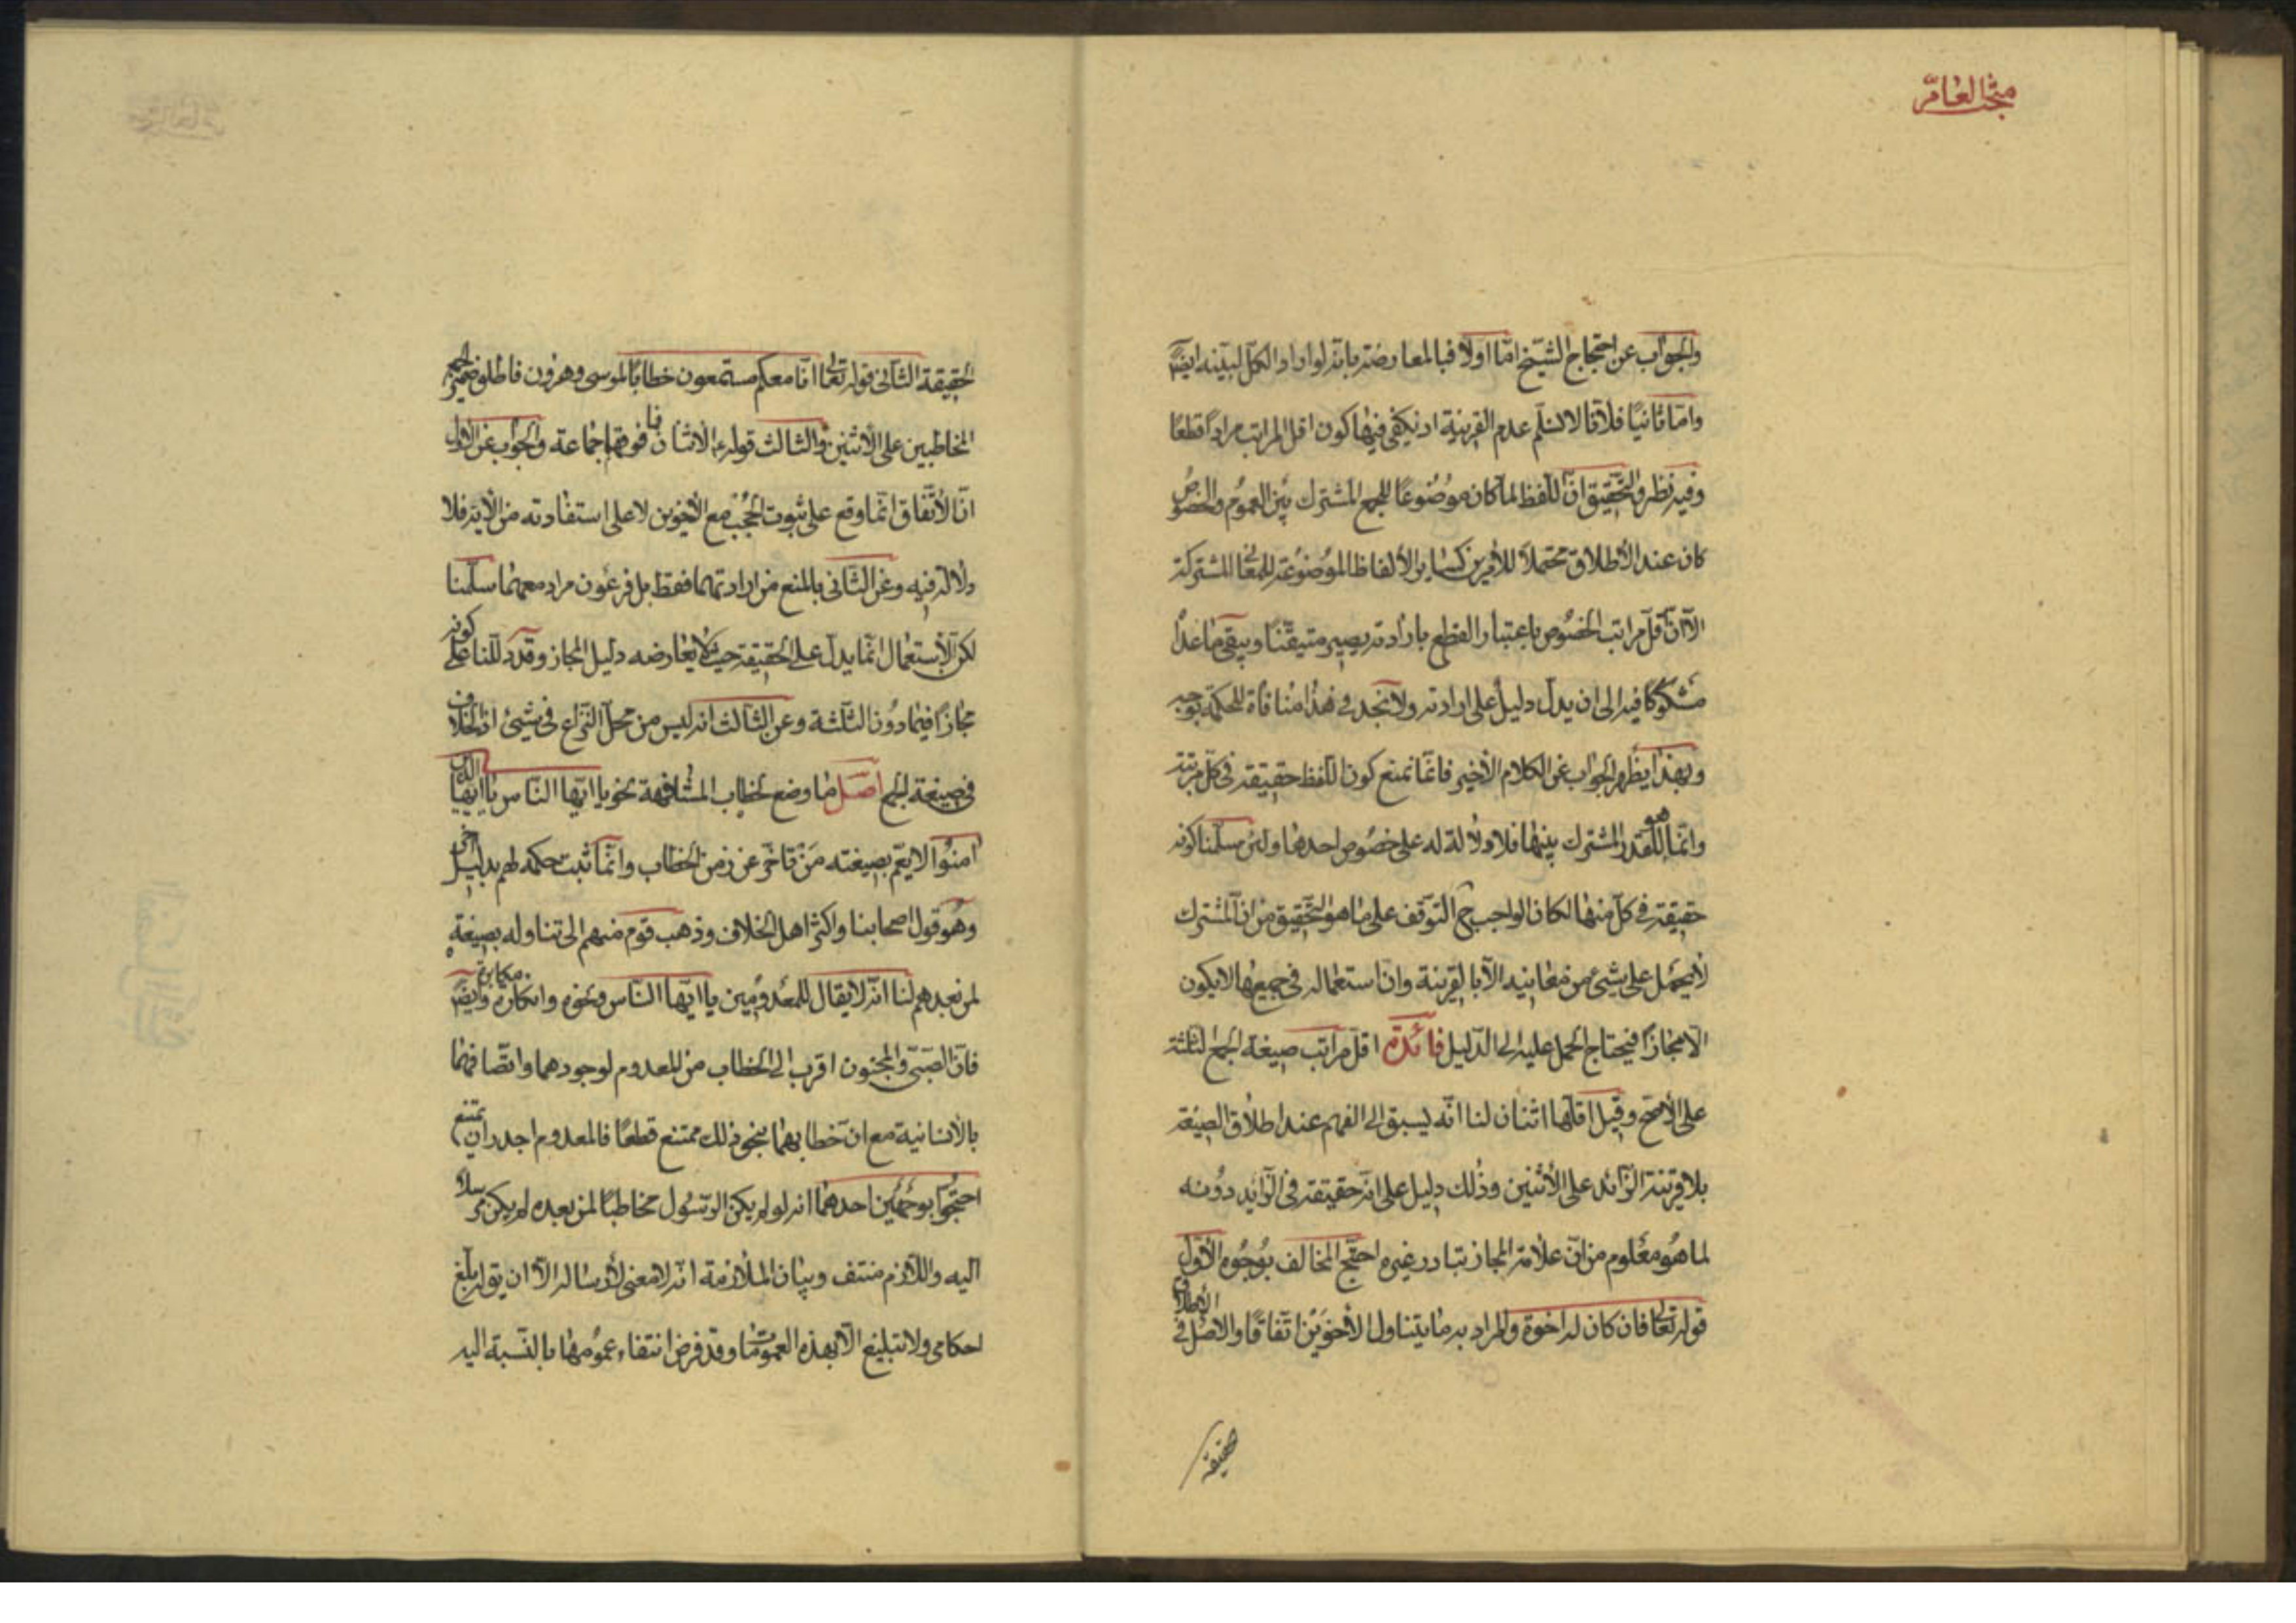 مبحث العام
والجواب عن احتجاج الشيخ امّا اولا فبالمعارضة بانه لو اراد الكلّ لبيّنه ايضًا
وامّا ثانيًا فلانّا لا نسلّم عدم القرينة اذ يكفى فيها كون اقل المراتب مرادًا قطعًا
وفيه نظر والتحقيق انّ اللّفظ لمّا كان موضوعًا للجمع المشترك بين العموم والخصوص
كان عند الاطلاق محتملاً للامرين كساير الالفاظ الموضوعة للمعانى المشتركة
الّا انّ اقلّ مراتب الخصوص باعتبار القطع بارادته يصير متيقّنًا ويبقى ما عداه
مشكوكًا فيه الى ان يدلّ دليل على ارادته ولا نجد فى هذا منافاة للحكمة بوجه
وبهذا يظهر الجواب عن الكلام الاخير فانّا نمنع كون اللّفظ حقيقة فى كلّ مرتبة
وانّما هو للقدر المشترك بينها فلا دلالة له على خصوص احدها ولئن سلّمنا كونه
حقيقة فى كلّ منها لكان الواجب ح التوقّف على ما هو التحقيق من انّ المشترك
لا يحمل على شىء من معانيه الّا بالقرينة وانّ استعماله فى جميعها لا يكون
الّا مجازًا فيحتاج الحمل عليه الى الدّليل فائدة اقلّ مراتب صيغة الجمع الثلثة
على الاصحّ وقيل اقلّها اثنان لنا انّه يسبق الى الفهم عند اطلاق الصيغة
بلا قرينة الزّائد على الاثنين وذلك دليل على انّه حقيقة فى الزّايد دونه
لما هو معلوم من انّ علامة المجاز تبادر غيره احتجّ المخالف بوجوه الاوّل
قوله تعالى فان كان له اخوة والمراد به ما يتناول الاخوين اتّفاقًا والاصل فى الاطلاق
حقيقة
الحقيقة الثانى قوله تعالى انّا معكم مستمعون خطابًا لموسى وهرون فاطلق ضمير الجمع
المخاطبين على الاثنين والثالث قوله ع الاثنان فما فوقهما جماعة والجواب عن الاول
انّ الاتّفاق انّما وقع على ثبوت الحجب مع الاخوين لا على استفادته من الاية فلا
دلالة فيه وعن الثانى بالمنع من ارادتهما فقط بل فرعون مراد معهما سلّمنا
لكن الاستعمال انّما يدلّ على الحقيقة حيث لا يعارضه دليل المجاز وقد دللنا على كونه
مجازًا فيما دون الثلثة وعن الثالث انه ليس من محلّ النّزاع فى شىء اذ الخلاف
فى صيغة الجمع اصل ما وضع لخطاب المشافهة نحو يا ايّها النّاس يا ايّها الذين
امنوا لا يعمّ بصيغته من تاخّر عن زمن الخطاب وانّما ثبت حكمه لهم بدليل اخر
وهو قول اصحابنا واكثر اهل الخلاف وذهب قوم منهم الى تناوله بصيغته
لمن بعدهم لنا انّه لا يقال للمعدومين يا ايّها النّاس ونحوه وانكاره مكابرة وايضًا
فانّ الصّبىّ والمجنون اقرب الى الخطاب من المعدوم لوجودهما واتّصافهما
بالانسانية مع انّ خطابهما بنحو ذلك ممتنع قطعًا فالمعدوم اجدر ان يمتنع
احتجّوا بوجهين احدهما انه لو لم يكن الرّسول مخاطبًا لمن بعده لم يكن مرسلًا
اليه واللّازم منتف وبيان الملازمة انه لا معنى لارساله الّا ان يق له بلّغ
احكامى ولا تبليغ الّا بهذه العمومات وقد فرض انتفاء عمومها بالنّسبة اليه